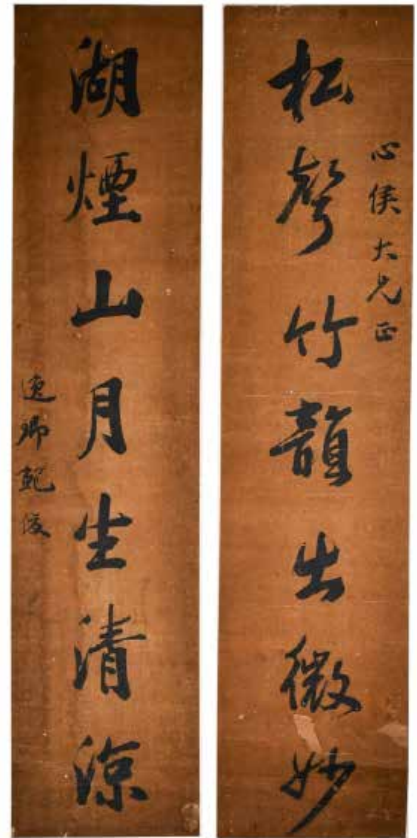 心侯大兄正
松聲竹韻出微妙
湖煙山月生清涼
逸卿鮑俊